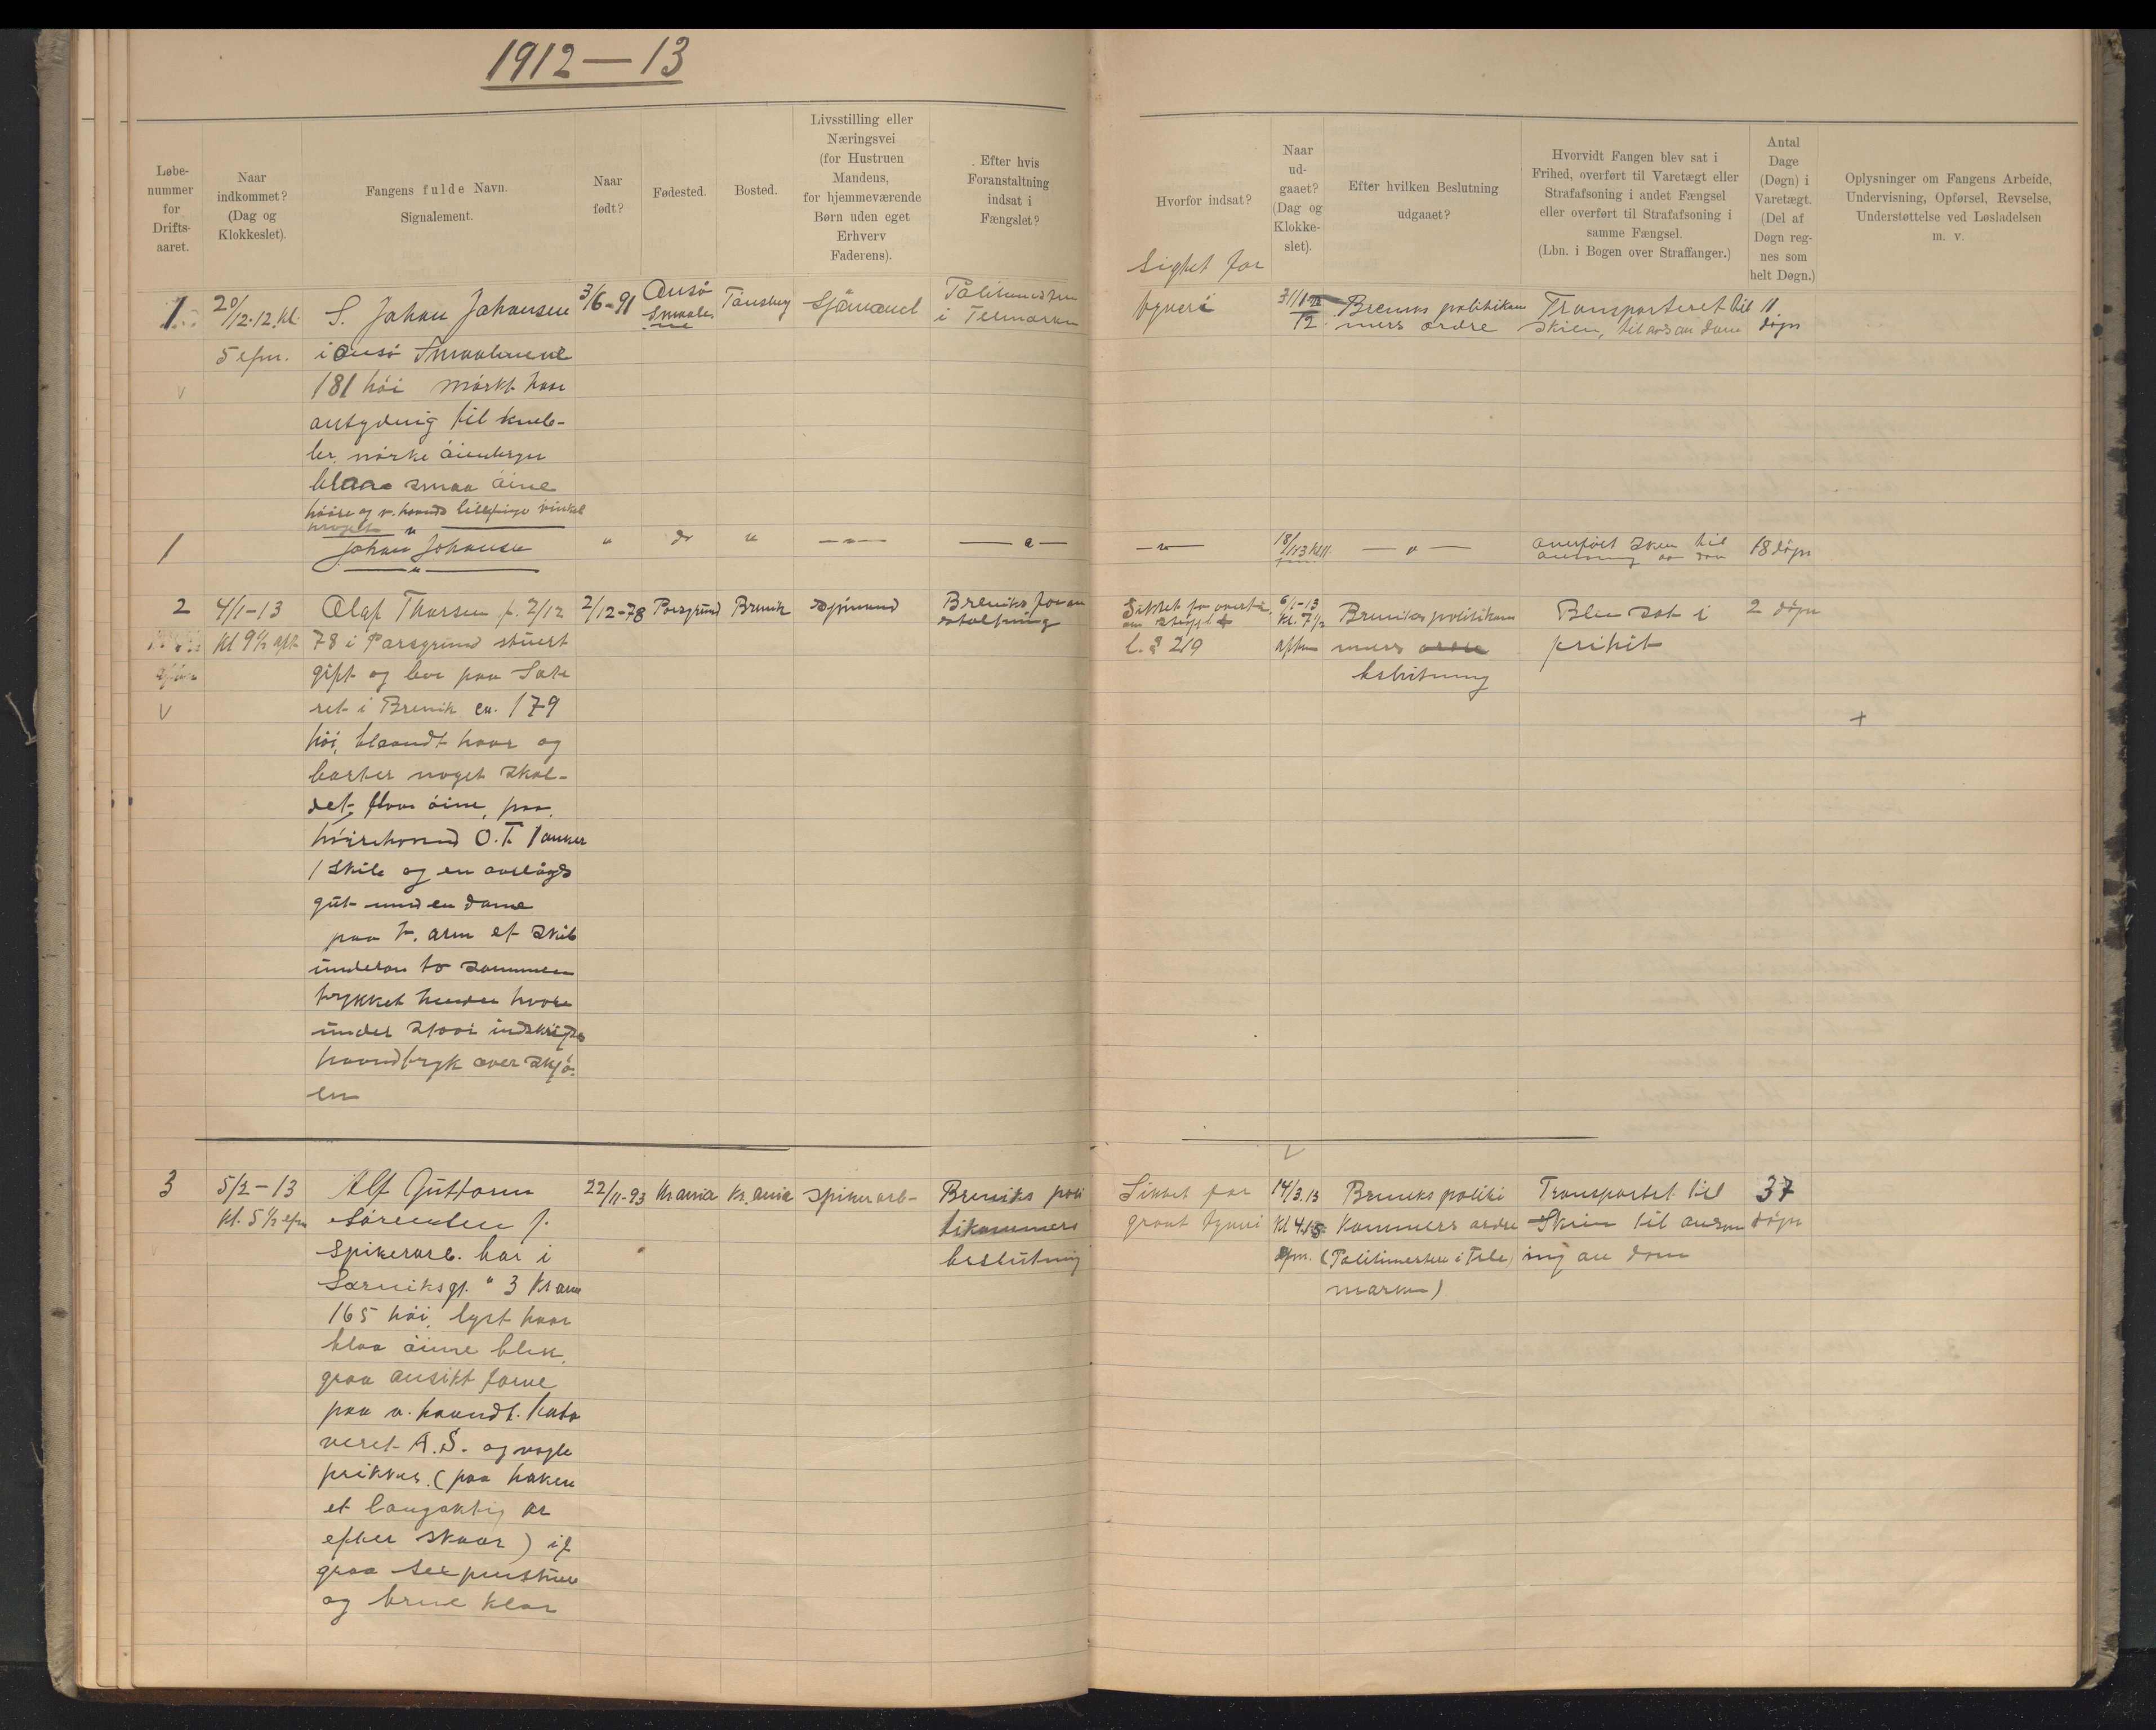 1912 — 13
Løbe-
nummer
for
Drifts-
aaret.
Naar
indkommet?
(Dag og
Klokkeslet).
Fangens fulde Navn.
Signalement.
Naar
født?
Fødested.
Bosted.
Livsstilling eller
Næringsvei
(for Hustruen
Mandens,
for hjemmeværende
Børn uden eget
Erhverv
Faderens).
Efter hvis
Foranstaltning
indsat i
Fængslet?
Hvorfor indsat?
Naar
ud-
gaaet?
(Dag og
Klokke-
slet).
Efter hvilken Beslutning
udgaaet?
Hvorvidt Fangen blev sat i
Frihed, overført til Varetægt eller
Strafafsoning i andet Fængsel
eller overført til Strafafsoning i
samme Fængsel.
(Lbn. i Bogen over Straffanger.)
Antal
Dage
(Døgn) i
Varetægt.
(Del af
Døgn reg-
nes som
helt Døgn.)
Oplysninger om Fangens Arbeide,
Undervisning, Opførsel, Revselse,
Understøttelse ved Løsladelsen
m. v.
1
20/12-12. kl.
5 efm.
S. Johan Johansen
181 höi mörkt haar
antydnig til
blaa smaa öine
3/6-91
Tönsberg
Sjömand
Politimesteren
i Telmarken
Sigtet for
tyveri
Breviks politikam
mers ordre
Transporteret til
Skien,
11
dögn
1
Johan Johansen
"
do
"
— " —
— " —
— " —
18/1 13
— " —
18 dögn
2
4/1-13
kl 9½ aft
Olaf Thorsen f. 2/12
78 i Porsgrund
gift og bor paa
ret i Brevik ca. 179
höi, blaandt haar og
barter noget skal-
det, blaa öine, paa
höirehaand O. T. 1 anker
1 skib og en
gut med en dame
paa v. arm et skib
under to sammen
trykket hender hvor
under staar indskrift
haandtryk over sjö-
en
2/12-78
Porsgrund
Brevik
Sjömand
Breviks foran
staltning
l. § 219
6/1-13
kl. 7½
aften
Breviks politikam
mers ordre
beslutning
Blev sat i
frihit
2 dögn
+
3
5/2-13
kl. 5½ efm
Alf Guttorm
Sörensen f.
Spikerarb. bor i
3 Kr ania
165 höi, lyst haar
blaa öine blek,
graa ansikt farve
paa v. haandt.
veret A. S. og nogle
prikker. (paa haken
et langaktig ar
efter skaar) if
graa
og brune klær
22/11-93
Kr ania
Kr. ania
Spikerarb-
Breviks poli
tikammers
beslutning
Siktet for
grovt tyveri
14/3.13
kl 4.15
efm.
Breviks politi
kammers ordre
(Politimesteren i Tele
marken)
Transportet til
Skien til avson
ing av dom
37
dögn